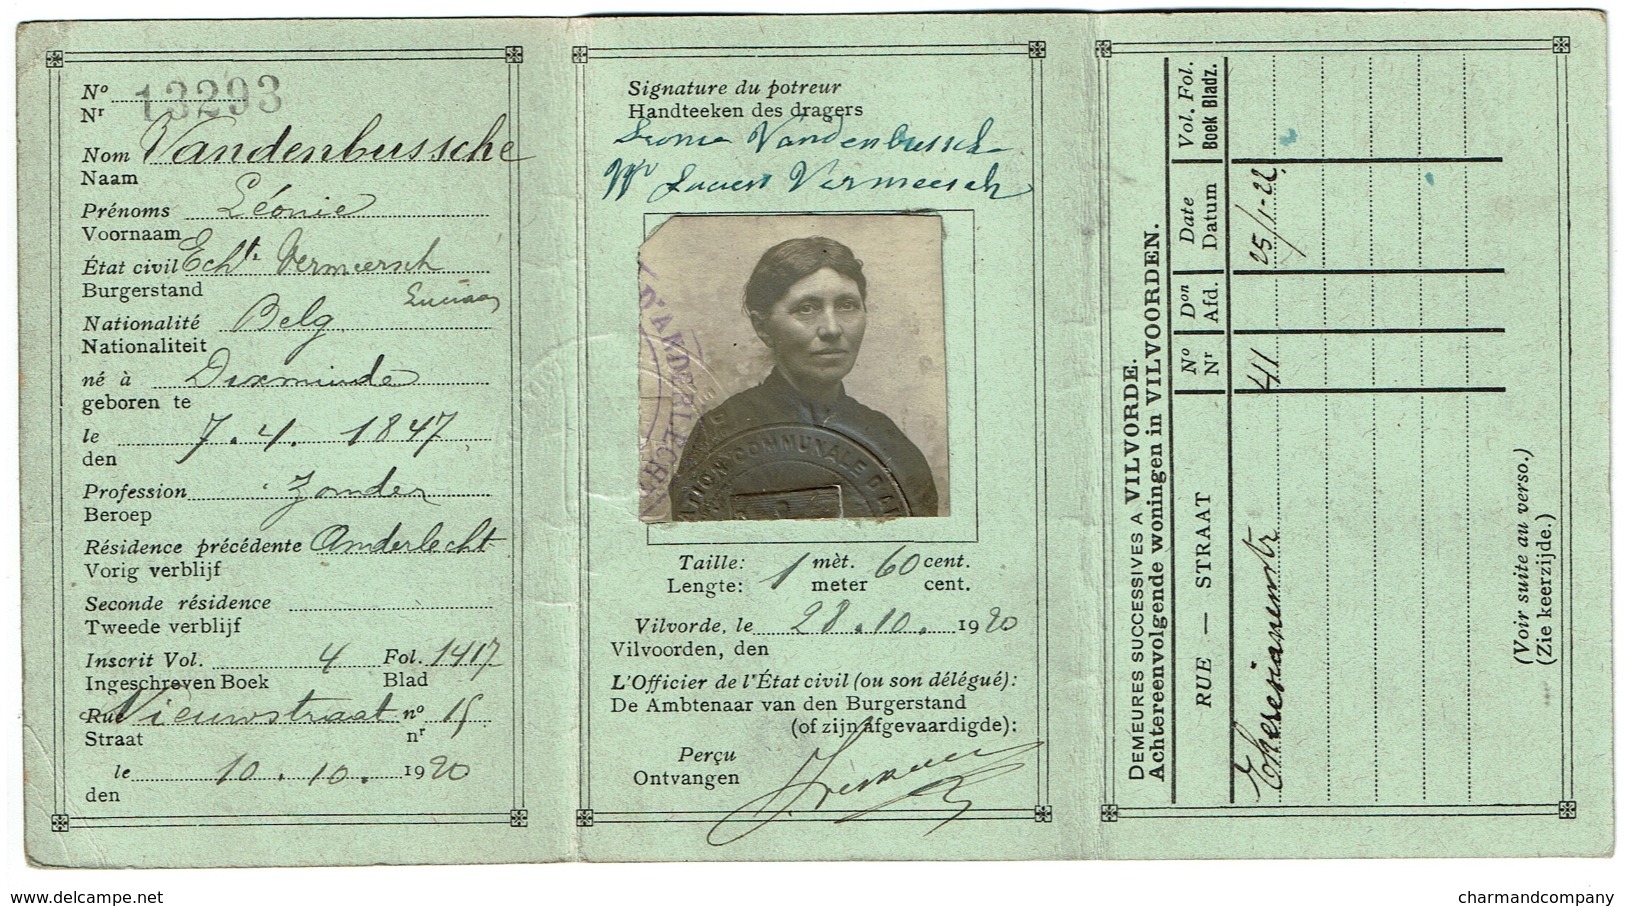 Nº 13293
Nr
Nom Vandenbussche
Naam
Prénoms Léonie
Voornaam
État civil Echte Vermeersch
Burgerstand
Nationalité Belg
Nationaliteit
né à Dixmuide
geboren te
le 7.4.1847
den
Profession Zonder
Beroep
Résidence précédente Anderlecht
Vorig verblijf
Seconde résidence
Tweede verblijf
Inscrit Vol. 4 Fol. 1417
Ingeschreven Boek Blad
Rue Nieuwstraat nº 15
Straat nr
le 10.10.1920
den
Signature du potreur
Handteeken des dragers
Leonie Vandenbussche
Vermeersch
D'ANDERLECHT
COMMUNALE D'AN
Taille: 1 mèt. 60 cent.
Lengte: meter cent.
Vilvorde, le 28.10.1920
Vilvoorden, den
L'Officier de l'État civil (ou son délégué):
De Ambtenaar van den Burgerstand
(of zijn afgevaardigde):
Perçu
Ontvangen
DEMEURES SUCCESSIVES A VILVORDE.
Achtereenvolgende woningen in VILVOORDEN.
RUE — STRAAT
Nº
Nr
Don
Afd.
Date
Datum
Vol. Fol.
Boek Bladz.
Theresianenstr 41 25/1-22
(Voir suite au verso.)
(Zie keerzijde.)
www.delcampe.net
charmandcompany